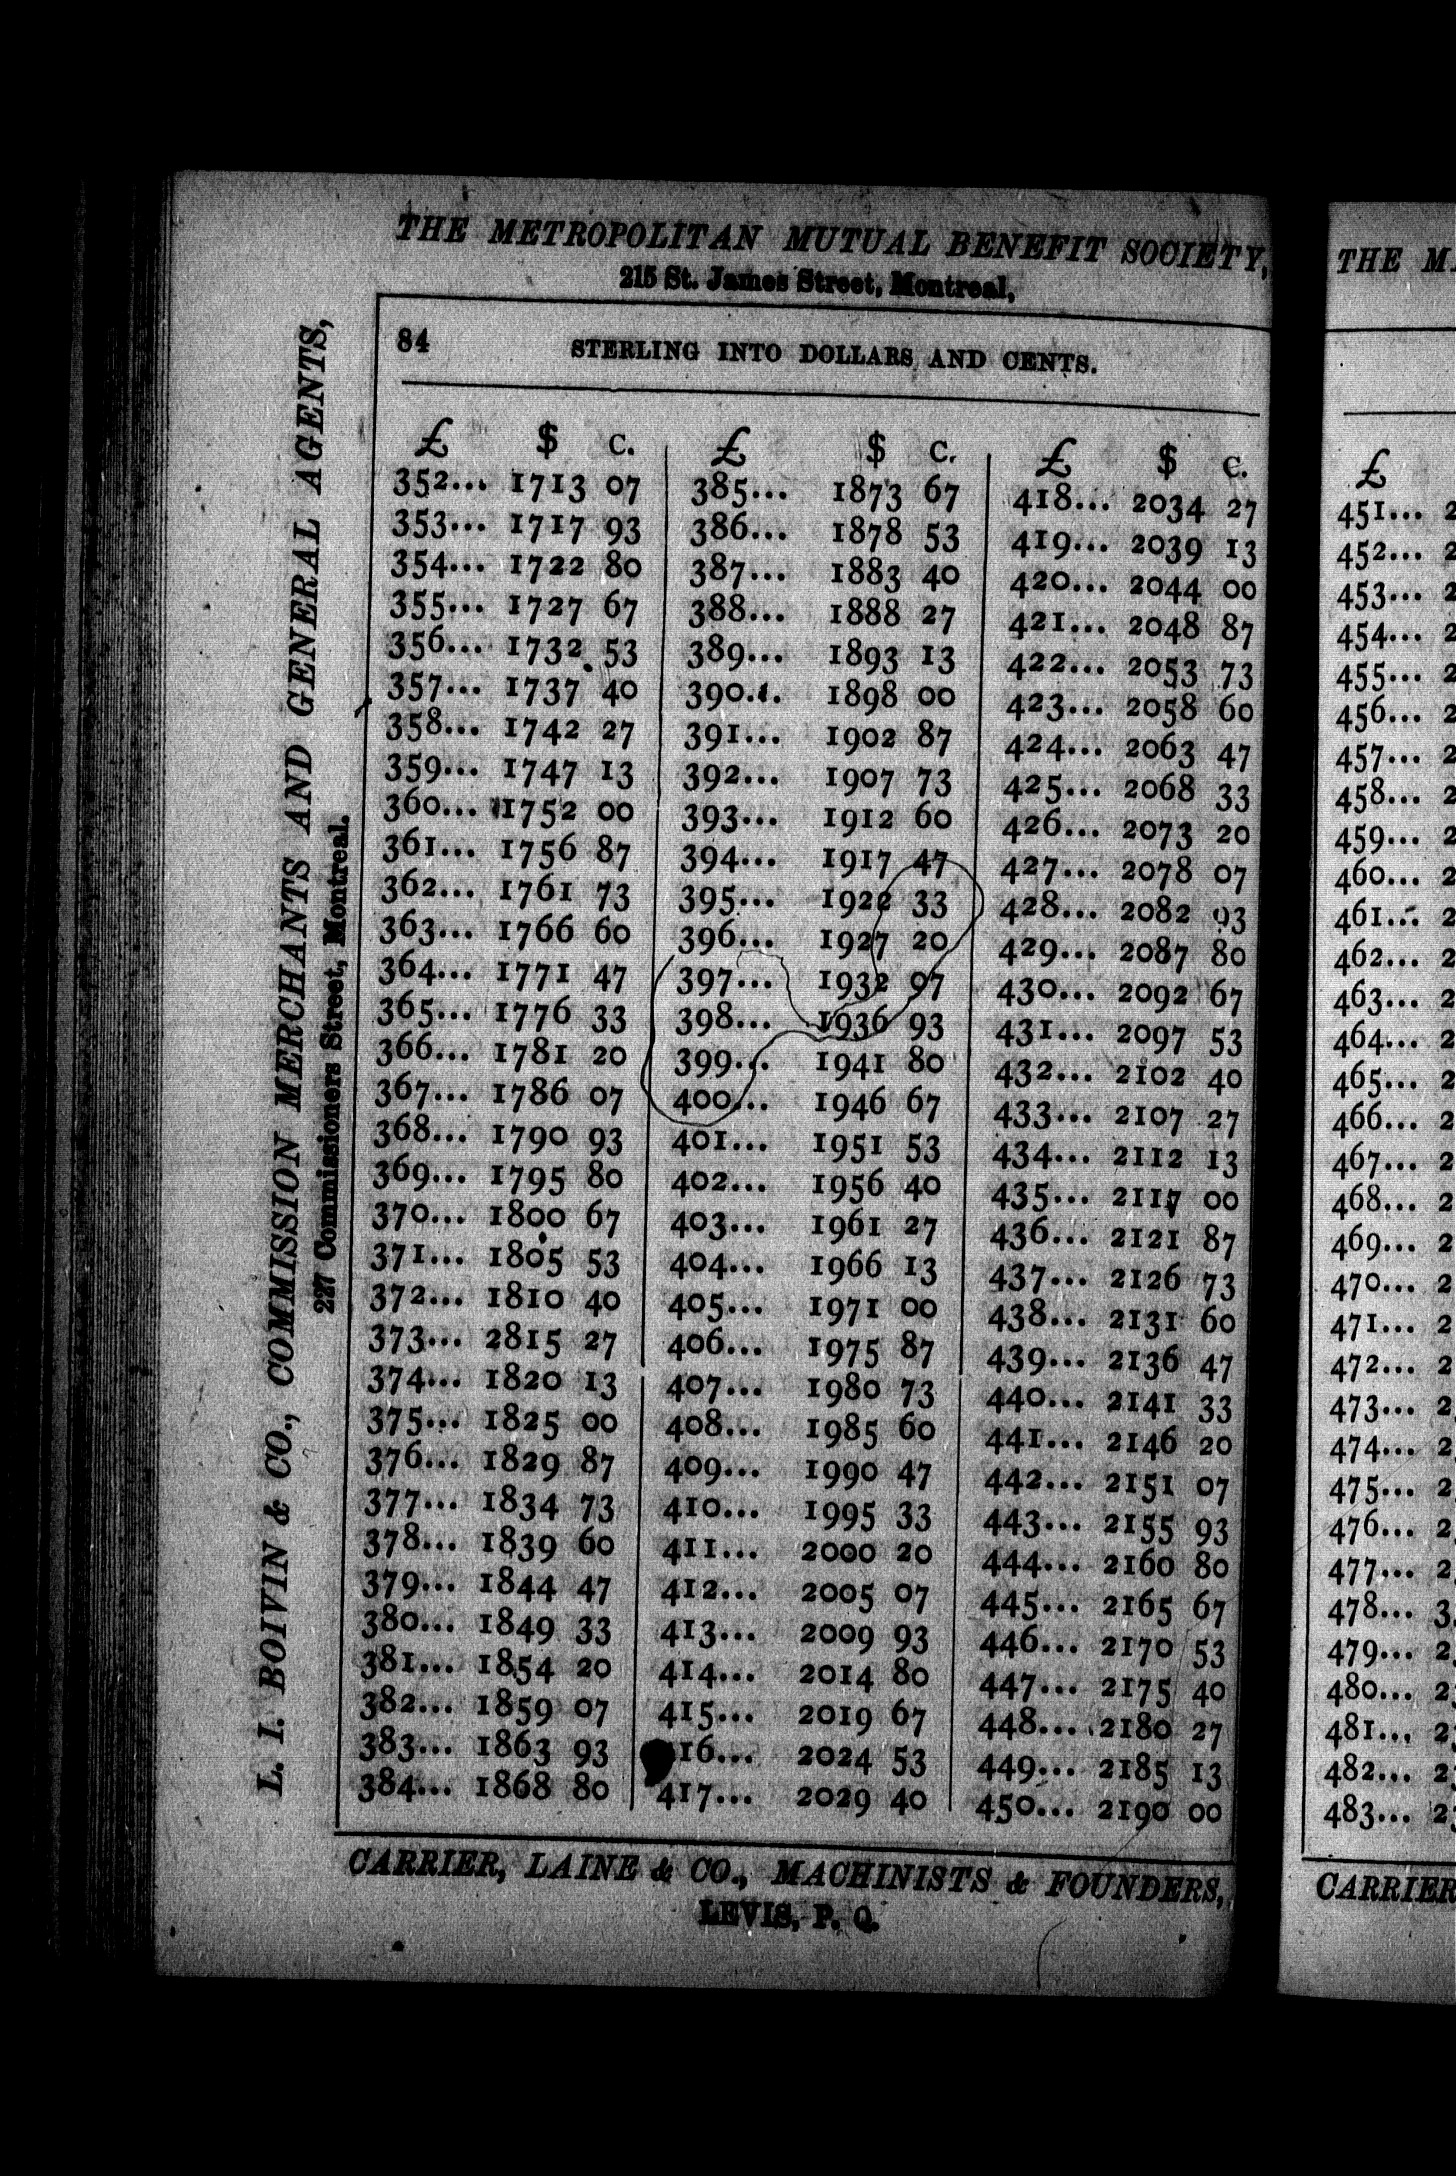 THE METROPOLITAN MUTUAL BENEFIT SOCIETY,
215 St. James Street, Montreal,
84 STERLING INTO DOLLARS AND CENTS.
£ $ c.
352... 1713 07
353... 1717 93
354... 1722 80
355... 1727 67
356... 1732 53
357... 1737 40
358... 1742 27
359... 1747 13
360... 1752 00
361... 1756 87
362... 1761 73
363... 1766 60
364... 1771 47
365... 1776 33
366... 1781 20
367... 1786 07
368... 1790 93
369... 1795 80
370... 1800 67
371... 1805 53
372... 1810 40
373... 2815 27
374... 1820 13
375... 1825 00
376... 1829 87
377... 1834 73
378... 1839 60
379... 1844 47
380... 1849 33
381... 1854 20
382... 1859 07
383... 1863 93
384... 1868 80
£ $ c.
385... 1873 67
386... 1878 53
387... 1883 40
388... 1888 27
389... 1893 13
390... 1898 00
391... 1902 87
392... 1907 73
393... 1912 60
394... 1917 47
395... 1922 33
396... 1927 20
397... 1932 97
398... 1936 93
399... 1941 80
400... 1946 67
401... 1951 53
402... 1956 40
403... 1961 27
404... 1966 13
405... 1971 00
406... 1975 87
407... 1980 73
408... 1985 60
409... 1990 47
410... 1995 33
411... 2000 20
412... 2005 07
413... 2009 93
414... 2014 80
415... 2019 67
16... 2024 53
417... 2029 40
£ $ c.
418... 2034 27
419... 2039 13
420... 2044 00
421... 2048 87
422... 2053 73
423... 2058 60
424... 2063 47
425... 2068 33
426... 2073 20
427... 2078 07
428... 2082 93
429... 2087 80
430... 2092 67
431... 2097 53
432... 2102 40
433... 2107 27
434... 2112 13
435... 2117 00
436... 2121 87
437... 2126 73
438... 2131 60
439... 2136 47
440... 2141 33
441... 2146 20
442... 2151 07
443... 2155 93
444... 2160 80
445... 2165 67
446... 2170 53
447... 2175 40
448... 2180 27
449... 2185 13
450... 2190 00
CARRIER, LAINE & CO., MACHINISTS & FOUNDERS,
LEVIS, P. Q.
L. I. BOIVIN & CO., COMMISSION MERCHANTS AND GENERAL AGENTS,
227 Commissioners Street, Montreal.
THE M
£
451... 2
452... 2
453... 2
454... 2
455... 2
456... 2
457... 2
458... 2
459... 2
460... 2
461... 2
462... 2
463... 2
464... 2
465... 2
466... 2
467... 2
468... 2
469... 2
470... 2
471... 2
472... 2
473... 2
474... 2
475... 2
476... 2
477... 2
478... 3
479... 2
480... 2
481... 2
482... 2
483... 2
CARRIER